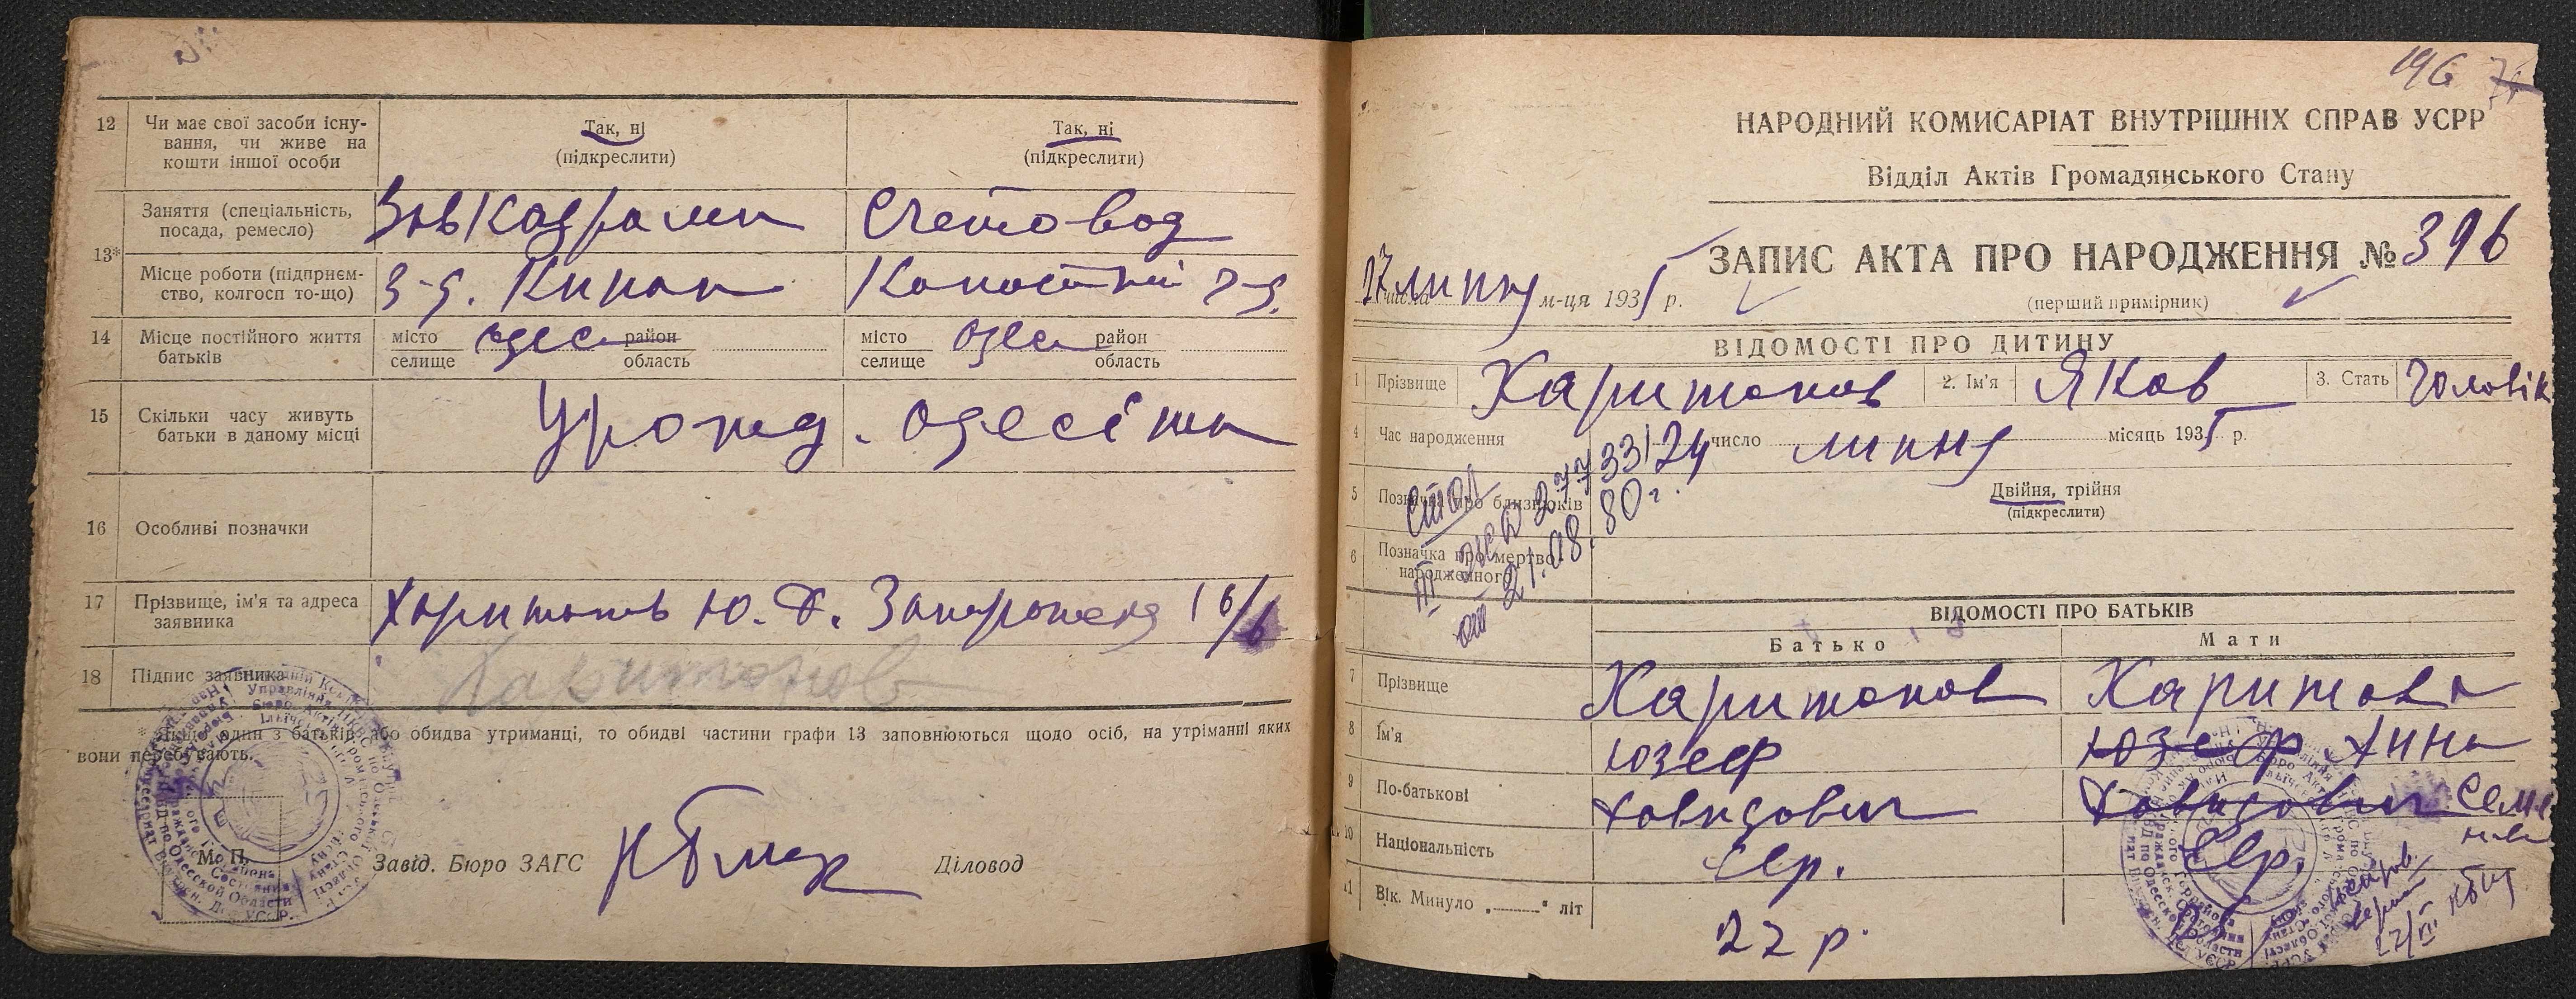 12 Чи має свої засоби існу-
вання, чи живе на
кошти іншої особи
Так, ні
(підкреслити)
Так, ні
(підкреслити)
13* Заняття (спеціальність,
посада, ремесло)
Зав Кадрами
Счетовод
Місце роботи (підприєм-
ство, колгосп то-що)
з-д. Кинап
Канатний з-д.
14 Місце постійного життя
батьків
місто
селище
Одеса
район
область
місто
селище
Одеса
район
область
15 Скільки часу живуть
батьки в даному місці
Урожд. Одесіти
16 Особливі позначки
17 Прізвище, ім'я та адреса
заявника
Харитонов Ю. Д. Запорожска 16/
18 Підпис заявника
Харитонов
* Якщо один з батьків або обидва утриманці, то обидві частини графи 13 заповнюються щодо осіб, на утриманні яких
вони перебувають.
М. П.
Завід. Бюро ЗАГС
Діловод
196
НАРОДНИЙ КОМИСАРІАТ ВНУТРІШНІХ СПРАВ УСРР
Відділ Актів Громадянського Стану
ЗАПИС АКТА ПРО НАРОДЖЕННЯ № 396
27 числа липня м-ця 1935 р.
(перший примірник)
ВІДОМОСТІ ПРО ДИТИНУ
1 Прізвище Харитонов 2. Ім'я Яков 3. Стать Чоловік
4 Час народження 24 число липня місяць 1935 р.
5 Позначка про близнюків
Двійня, трійня
(підкреслити)
6 Позначка про мертво-
народженого
III
от 21.08.80г.
ВІДОМОСТІ ПРО БАТЬКІВ
Батько
Мати
7 Прізвище
Харитонов
Харитова
8 Ім'я
Юзеф
Юзеф Анна
9 По-батькові
Давидович
Давидович Семе
10 Національність
Євр.
Євр.
11 Вік. Минуло „ “ літ
22 р.